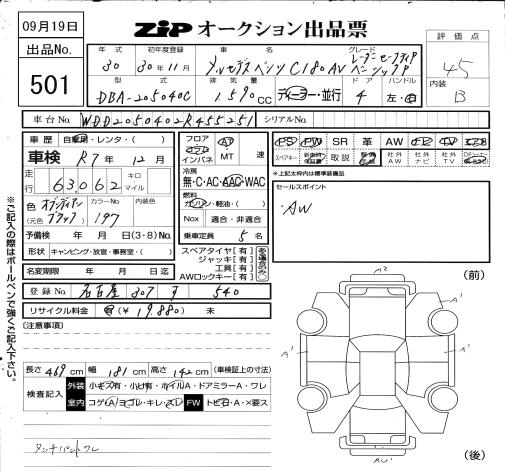 09月19日
ZiP オークション出品票
出品No.
501
評価点
4.5
内装
B
年式 初年度登録 車名 グレード
30 30年11月 メルセデスベンツC180AV
型式 排気量 ドア ハンドル
DBA-205040C 1.590cc ディーラー・並行 4 左・右
車台No. WDD2050402R455251 シリアルNo.
車歴 自家用・レンタ・( )
車検 R7年12月
走行 63,062 キロ マイル
色 オブシディアンブラック カラーNo 197 内装色
(元色 )
予備検 年 月 日(3・8)No.
形状 キャンピング・放宣・事務室・( )
名変期限 年 月 日迄
フロア コラム インパネ AT MT 速
冷房 無・C・AC・AAC・WAC
燃料 ガソリン・軽油・( )
Nox 適合・非適合
乗車定員 5名
スペアタイヤ【有】
ジャッキ【有】
工具【有】
AWロックキー【有】
PS PW SR 革 AW ナビ TV
スペアキー 新車時保証書 取説 整備手帳 社外AW 社外ナビ 社外TV
*上記太枠内は標準装備品
セールスポイント
・AW
登録No. 名古屋 307 す 540
リサイクル料金 有(¥19,880) 未
(注意事項)
※ご記入の際はボールペンで強くご記入下さい。
長さ 469cm 幅 181cm 高さ 142cm (車検証上の寸法)
検査記入 外装 小キズ有・小凹有・ホイルA・ドアミラーA・ワレ
室内 コゲ(A)・ヨゴレ・キレ・スレ FW トビ石・A・×要ス
(前)
A2
A'
A'
A'
AU'
(後)